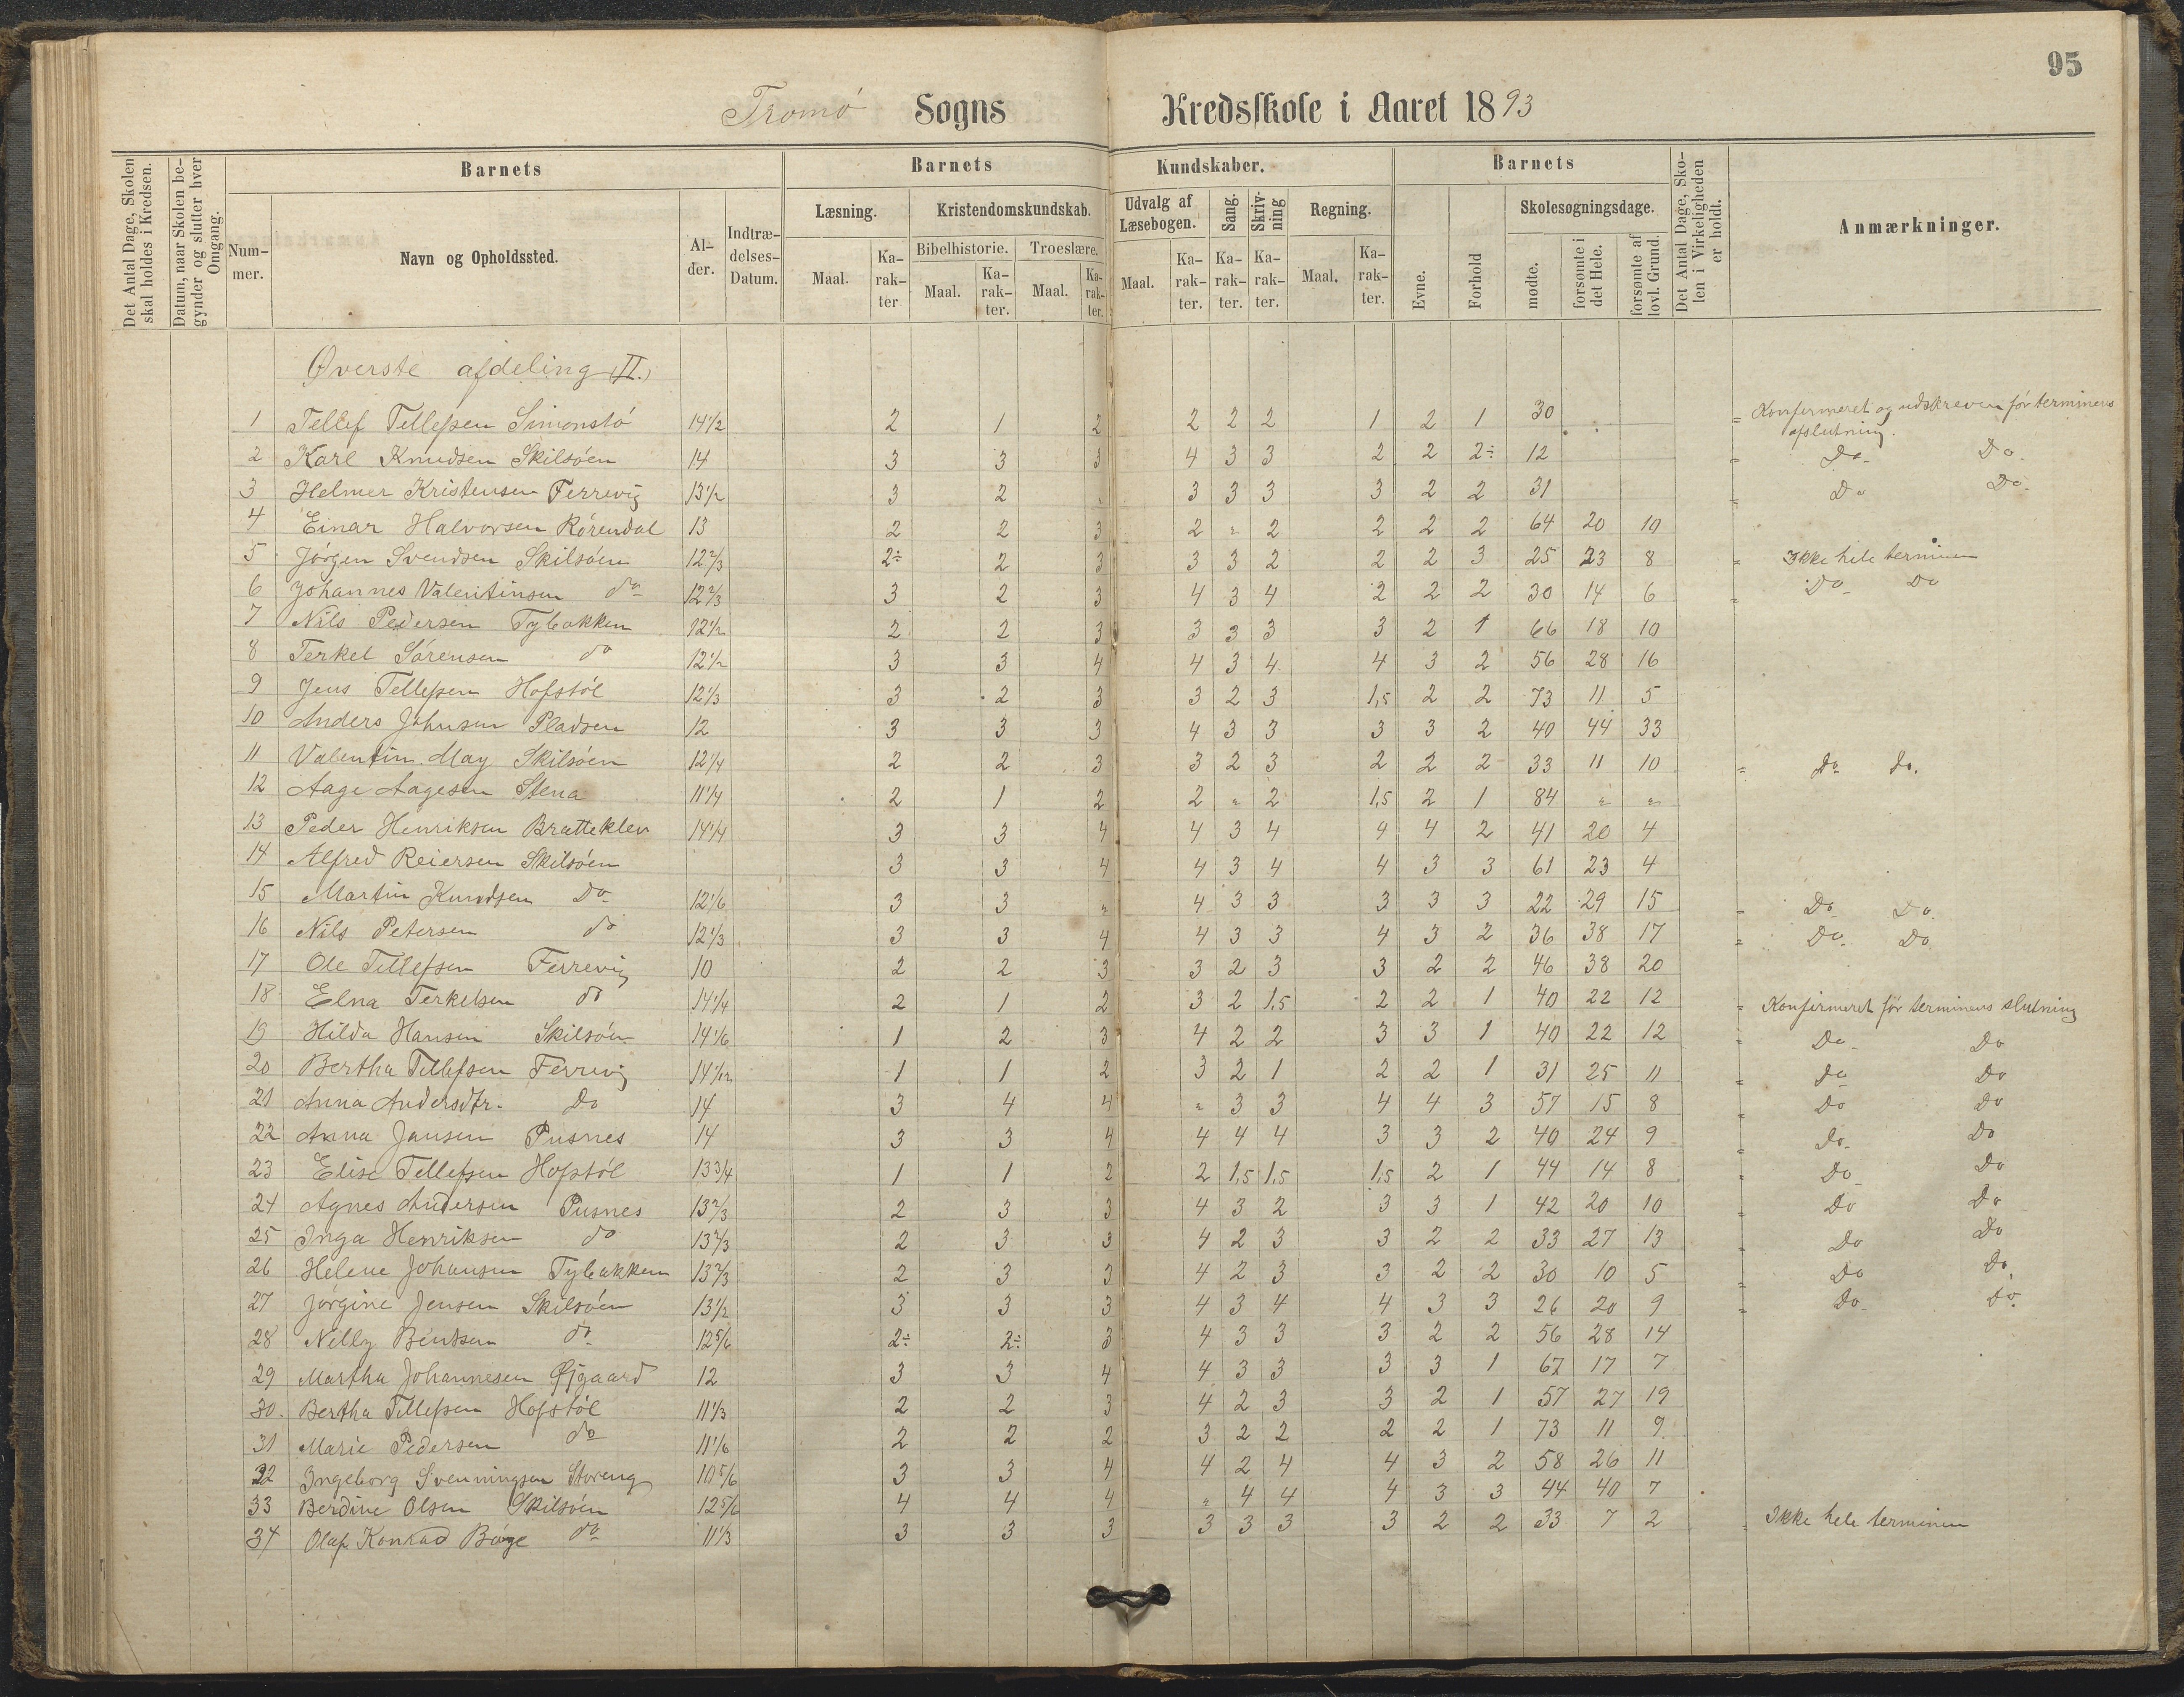 95
Tromø Sogns Kredsskole i Aaret 1893
Det Antal Dage, Skolen skal holdes i Kredsen.
Datum, naar Skolen begynder og slutter hver Omgang.
Barnets
Barnets
Kundskaber.
Barnets
Det Antal Dage, Skolen i Virkeligheden er holdt.
Anmærkninger.
Nummer.
Navn og Opholdssted.
Alder.
Indtrædelses-Datum.
Læsning.
Kristendomskundskab.
Udvalg af Læsebogen.
Sang.
Skrivning
Regning.
Evne.
Forhold
Skolesøgningsdage.
Bibelhistorie.
Troeslære.
Maal. Karakter Maal. Karakter. Maal. Karakter. Maal. Karakter. Karakter. Karakter. Maal. Karakter.
mødte. forsømte i det Hele. forsømte af lovl. Grund.
Øverste afdeling (II.)
1 Tellef Tellefsen Simonstø 14 1/2 2 1 2 2 2 2 1 2 1 30 " Konfirmeret og udskreven før terminens afslutning.
2 Karl Knudsen Skilsøen 14 3 3 3 4 3 3 2 2 2÷ 12 " Do Do.
3 Helmer Kristensen Færrevig 13 1/2 3 2 " 3 3 3 3 2 2 31 " Do Do.
4 Einar Halvorsen Rørendal 13 2 2 3 2 " 2 2 2 2 64 20 10
5 Jørgen Svendsen Skilsøen 12 2/3 2÷ 2 3 3 3 2 2 2 3 25 23 8 " Ikke hele terminen
6 Johannes Valentinsen do 12 2/3 3 2 3 4 3 4 2 2 2 30 14 6 " Do Do
7 Nils Pedersen Tybakken 12 1/2 2 2 3 3 3 3 3 2 1 66 18 10
8 Terkel Sørensen do 12 1/2 3 3 4 4 3 4 4 3 2 56 28 16
9 Jens Tellefsen Hofstøl 12 1/3 3 2 3 3 2 3 1,5 2 2 73 11 5
10 Anders Johnsen Pladsen 12 3 3 3 4 3 3 3 3 2 40 44 33
11 Valentin May Skilsøen 12 1/4 2 2 3 3 2 3 2 2 2 33 11 10 " Do do.
12 Aage Aagesen Stena 11 1/4 2 1 2 2 " 2 1,5 2 1 84 " "
13 Peder Henriksen Bratteklev 14 1/4 3 3 4 4 3 4 4 4 2 41 20 4
14 Alfred Reiersen Skilsøen 3 3 4 4 3 4 4 3 3 61 23 4
15 Martin Knudsen Do 12 1/6 3 3 " 4 3 3 3 3 3 22 29 15 " Do Do.
16 Nils Petersen do 12 1/3 3 3 4 4 3 3 4 3 2 36 38 17 " Do. Do
17 Ole Tellefsen Færrevig 10 2 2 3 3 2 3 3 2 2 46 38 20
18 Elna Terkelsen do 14 1/4 2 1 2 3 2 1,5 2 2 1 40 22 12 " Konfirmeret før terminens slutning
19 Hilda Hansen Skilsøen 14 1/6 1 2 3 4 2 2 3 3 1 40 22 12 " Do Do
20 Bertha Tellefsen Færrevig 14 1/12 1 1 2 3 2 1 2 2 1 31 25 11 " Do Do
21 Anna Andersdtr. Do 14 3 4 4 " 3 3 4 4 3 57 15 8 " Do Do
22 Anna Jansen Pusnes 14 3 3 4 4 4 4 3 3 2 40 24 9 " Do Do
23 Elise Tellefsen Hofstøl 13 3/4 1 1 2 2 1,5 1,5 1,5 2 1 44 14 8 " Do Do
24 Agnes Andersen Pusnes 13 2/3 2 3 3 4 3 2 3 3 1 42 20 10 " Do Do
25 Inga Henriksen do 13 2/3 2 3 3 4 2 3 3 2 2 33 27 13 " Do Do
26 Helene Johansen Tybakken 13 2/3 2 3 3 4 2 3 3 2 2 30 10 5 " Do Do
27 Jørgine Jensen Skilsøen 13 1/2 3 3 3 4 3 4 4 3 3 26 20 9 " Do Do.
28 Nelly Bentsen do 12 5/6 2÷ 2÷ 3 4 3 3 3 2 2 56 28 14
29 Martha Johannesen Øjgaard 12 3 3 4 4 3 3 3 3 1 67 17 7
30. Bertha Tellefsen Hofstøl 11 1/3 2 2 3 4 2 3 3 2 1 57 27 19
31 Marie Pedersen do 11 1/6 2 2 2 3 2 2 2 2 1 73 11 9
32 Ingeborg Svenningsen Storeng 10 5/6 3 3 4 4 2 4 4 3 2 58 26 11
33 Berdine Olsen Skilsøen 12 5/6 4 4 4 " 4 4 4 3 3 44 40 7
34 Olaf Konrad Bøge do 11 1/3 3 3 3 3 3 3 3 2 2 33 7 2 " Ikke hele terminen